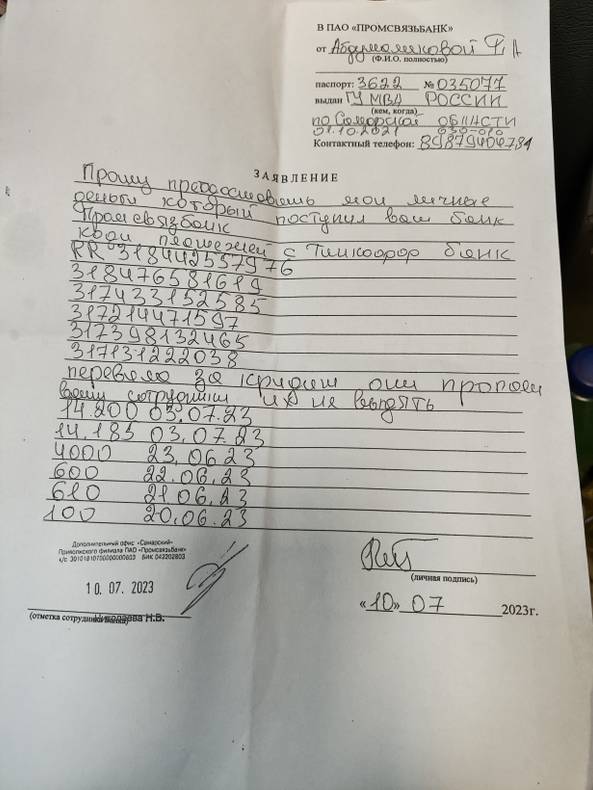 В ПАО «ПРОМСВЯЗЬБАНК»
от Абдумаликовой Ф А
(Ф.И.О. полностью)
паспорт: 3622 № 035077
выдан ГУ МВД РОССИИ
(кем, когда)
по Самарской ОБЛАСТИ
01.10.2021 630-010
Контактный телефон: 89879404784
ЗАЯВЛЕНИЕ
Прошу предоставить мои личные
деньги который поступил ваш банк
Промсвязбанк
коди платежей с Тинкофор банк
RR 318442557976
318476581619
317433152585
317214471597
317398132465
317131222038
перевела за кридит они пропали
ваши сотрудники их не видять
14.200 03.07.23
14.185 03.07.23
4000 23.06.23
600 22.06.23
610 21.06.23
100 20.06.23
Дополнительный офис «Самарский»
Приволжского филиала ПАО «Промсвязьбанк»
к/с 30101810700000000803 БИК 042202803
10. 07. 2023
(личная подпись)
«10» 07 2023г.
Николаева Н.В.
(отметка сотрудника банка)